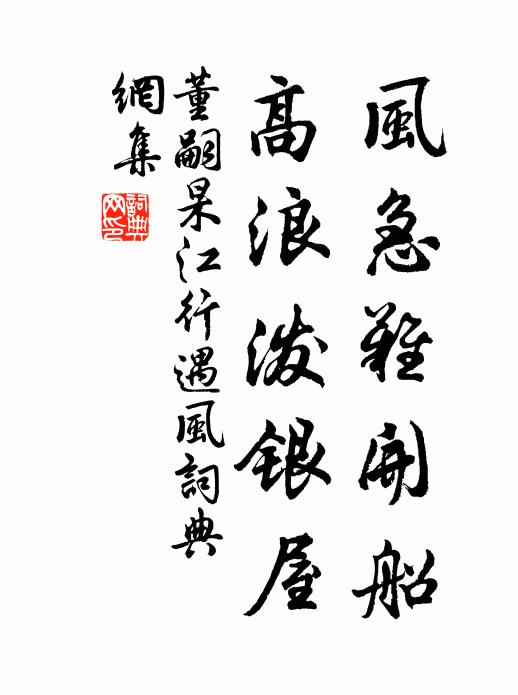 風急難開船
高浪潑銀屋
董嗣杲江行遇風詞典
網集
詞典
网印